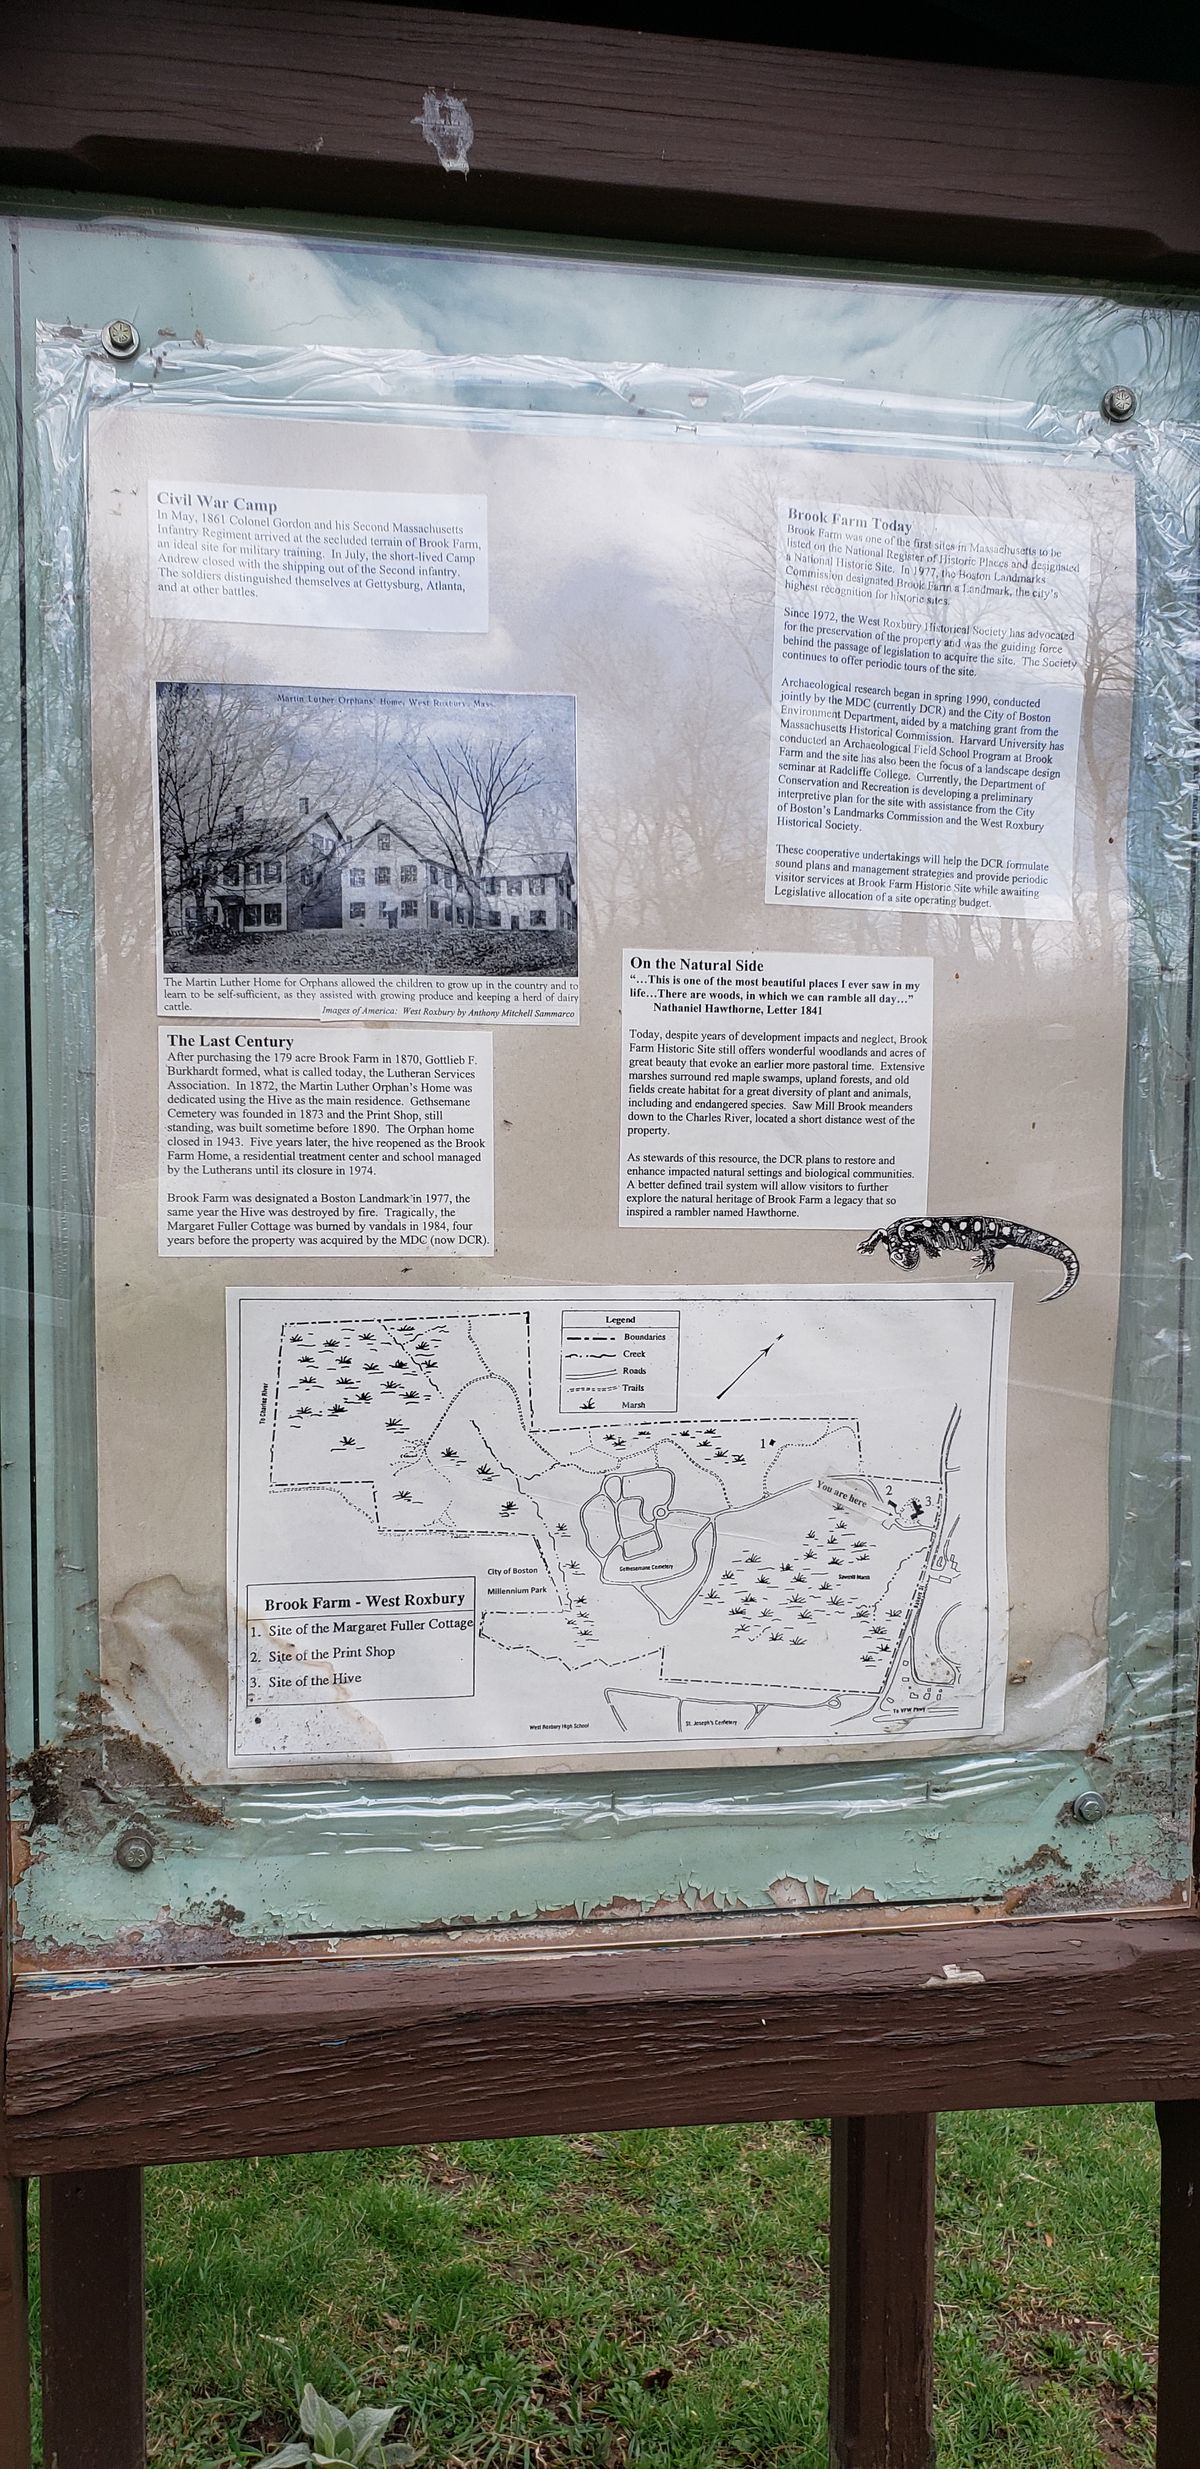 Civil War Camp
In May, 1861 Colonel Gordon and his Second Massachusetts
Infantry Regiment arrived at the secluded terrain of Brook Farm,
an ideal site for military training. In July, the short-lived Camp
Andrew closed with the shipping out of the Second infantry.
The soldiers distinguished themselves at Gettysburg, Atlanta,
and at other battles.
Martin Luther Orphans' Home, West Roxbury, Mass.
The Martin Luther Home for Orphans allowed the children to grow up in the country and to
learn to be self-sufficient, as they assisted with growing produce and keeping a herd of dairy
cattle.
Images of America: West Roxbury by Anthony Mitchell Sammarco
The Last Century
After purchasing the 179 acre Brook Farm in 1870, Gottlieb F.
Burkhardt formed, what is called today, the Lutheran Services
Association. In 1872, the Martin Luther Orphan's Home was
dedicated using the Hive as the main residence. Gethsemane
Cemetery was founded in 1873 and the Print Shop, still
standing, was built sometime before 1890. The Orphan home
closed in 1943. Five years later, the hive reopened as the Brook
Farm Home, a residential treatment center and school managed
by the Lutherans until its closure in 1974.
Brook Farm was designated a Boston Landmark in 1977, the
same year the Hive was destroyed by fire. Tragically, the
Margaret Fuller Cottage was burned by vandals in 1984, four
years before the property was acquired by the MDC (now DCR).
Brook Farm Today
Brook Farm was one of the first sites in Massachusetts to be
listed on the National Register of Historic Places and designated
a National Historic Site. In 1977, the Boston Landmarks
Commission designated Brook Farm a Landmark, the city's
highest recognition for historic sites.
Since 1972, the West Roxbury Historical Society has advocated
for the preservation of the property and was the guiding force
behind the passage of legislation to acquire the site. The Society
continues to offer periodic tours of the site.
Archaeological research began in spring 1990, conducted
jointly by the MDC (currently DCR) and the City of Boston
Environment Department, aided by a matching grant from the
Massachusetts Historical Commission. Harvard University has
conducted an Archaeological Field School Program at Brook
Farm and the site has also been the focus of a landscape design
seminar at Radcliffe College. Currently, the Department of
Conservation and Recreation is developing a preliminary
interpretive plan for the site with assistance from the City
of Boston's Landmarks Commission and the West Roxbury
Historical Society.
These cooperative undertakings will help the DCR formulate
sound plans and management strategies and provide periodic
visitor services at Brook Farm Historic Site while awaiting
Legislative allocation of a site operating budget.
On the Natural Side
"...This is one of the most beautiful places I ever saw in my
life...There are woods, in which we can ramble all day..."
Nathaniel Hawthorne, Letter 1841
Today, despite years of development impacts and neglect, Brook
Farm Historic Site still offers wonderful woodlands and acres of
great beauty that evoke an earlier more pastoral time. Extensive
marshes surround red maple swamps, upland forests, and old
fields create habitat for a great diversity of plant and animals,
including and endangered species. Saw Mill Brook meanders
down to the Charles River, located a short distance west of the
property.
As stewards of this resource, the DCR plans to restore and
enhance impacted natural settings and biological communities.
A better defined trail system will allow visitors to further
explore the natural heritage of Brook Farm a legacy that so
inspired a rambler named Hawthorne.
Legend
Boundaries
Creek
Roads
Trails
Marsh
To Charles River
1
You are here
2
3
Gethesemane Cemetery
Sawmill Marsh
City of Boston
Millennium Park
Baker St
Brook Farm - West Roxbury
1. Site of the Margaret Fuller Cottage
2. Site of the Print Shop
3. Site of the Hive
West Roxbury High School
St. Joseph's Cemetery
To VFW Pkwy